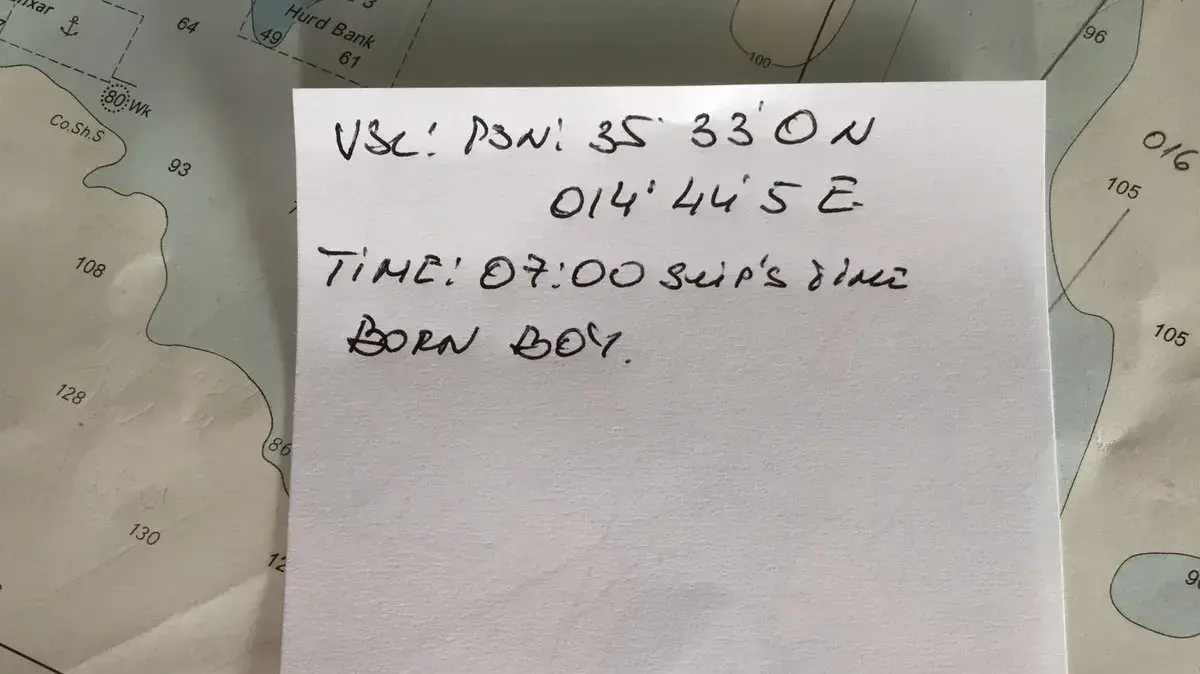 nxar
64
3
Hurd Bank
49
61
100
96
80 Wk
Co.Sh.S
93
016
105
108
105
128
86
130
12
9
VSL: PSN: 35° 33'0 N
014° 44'5 E
TIME: 07:00 SHIP'S TIME
BORN BOY.